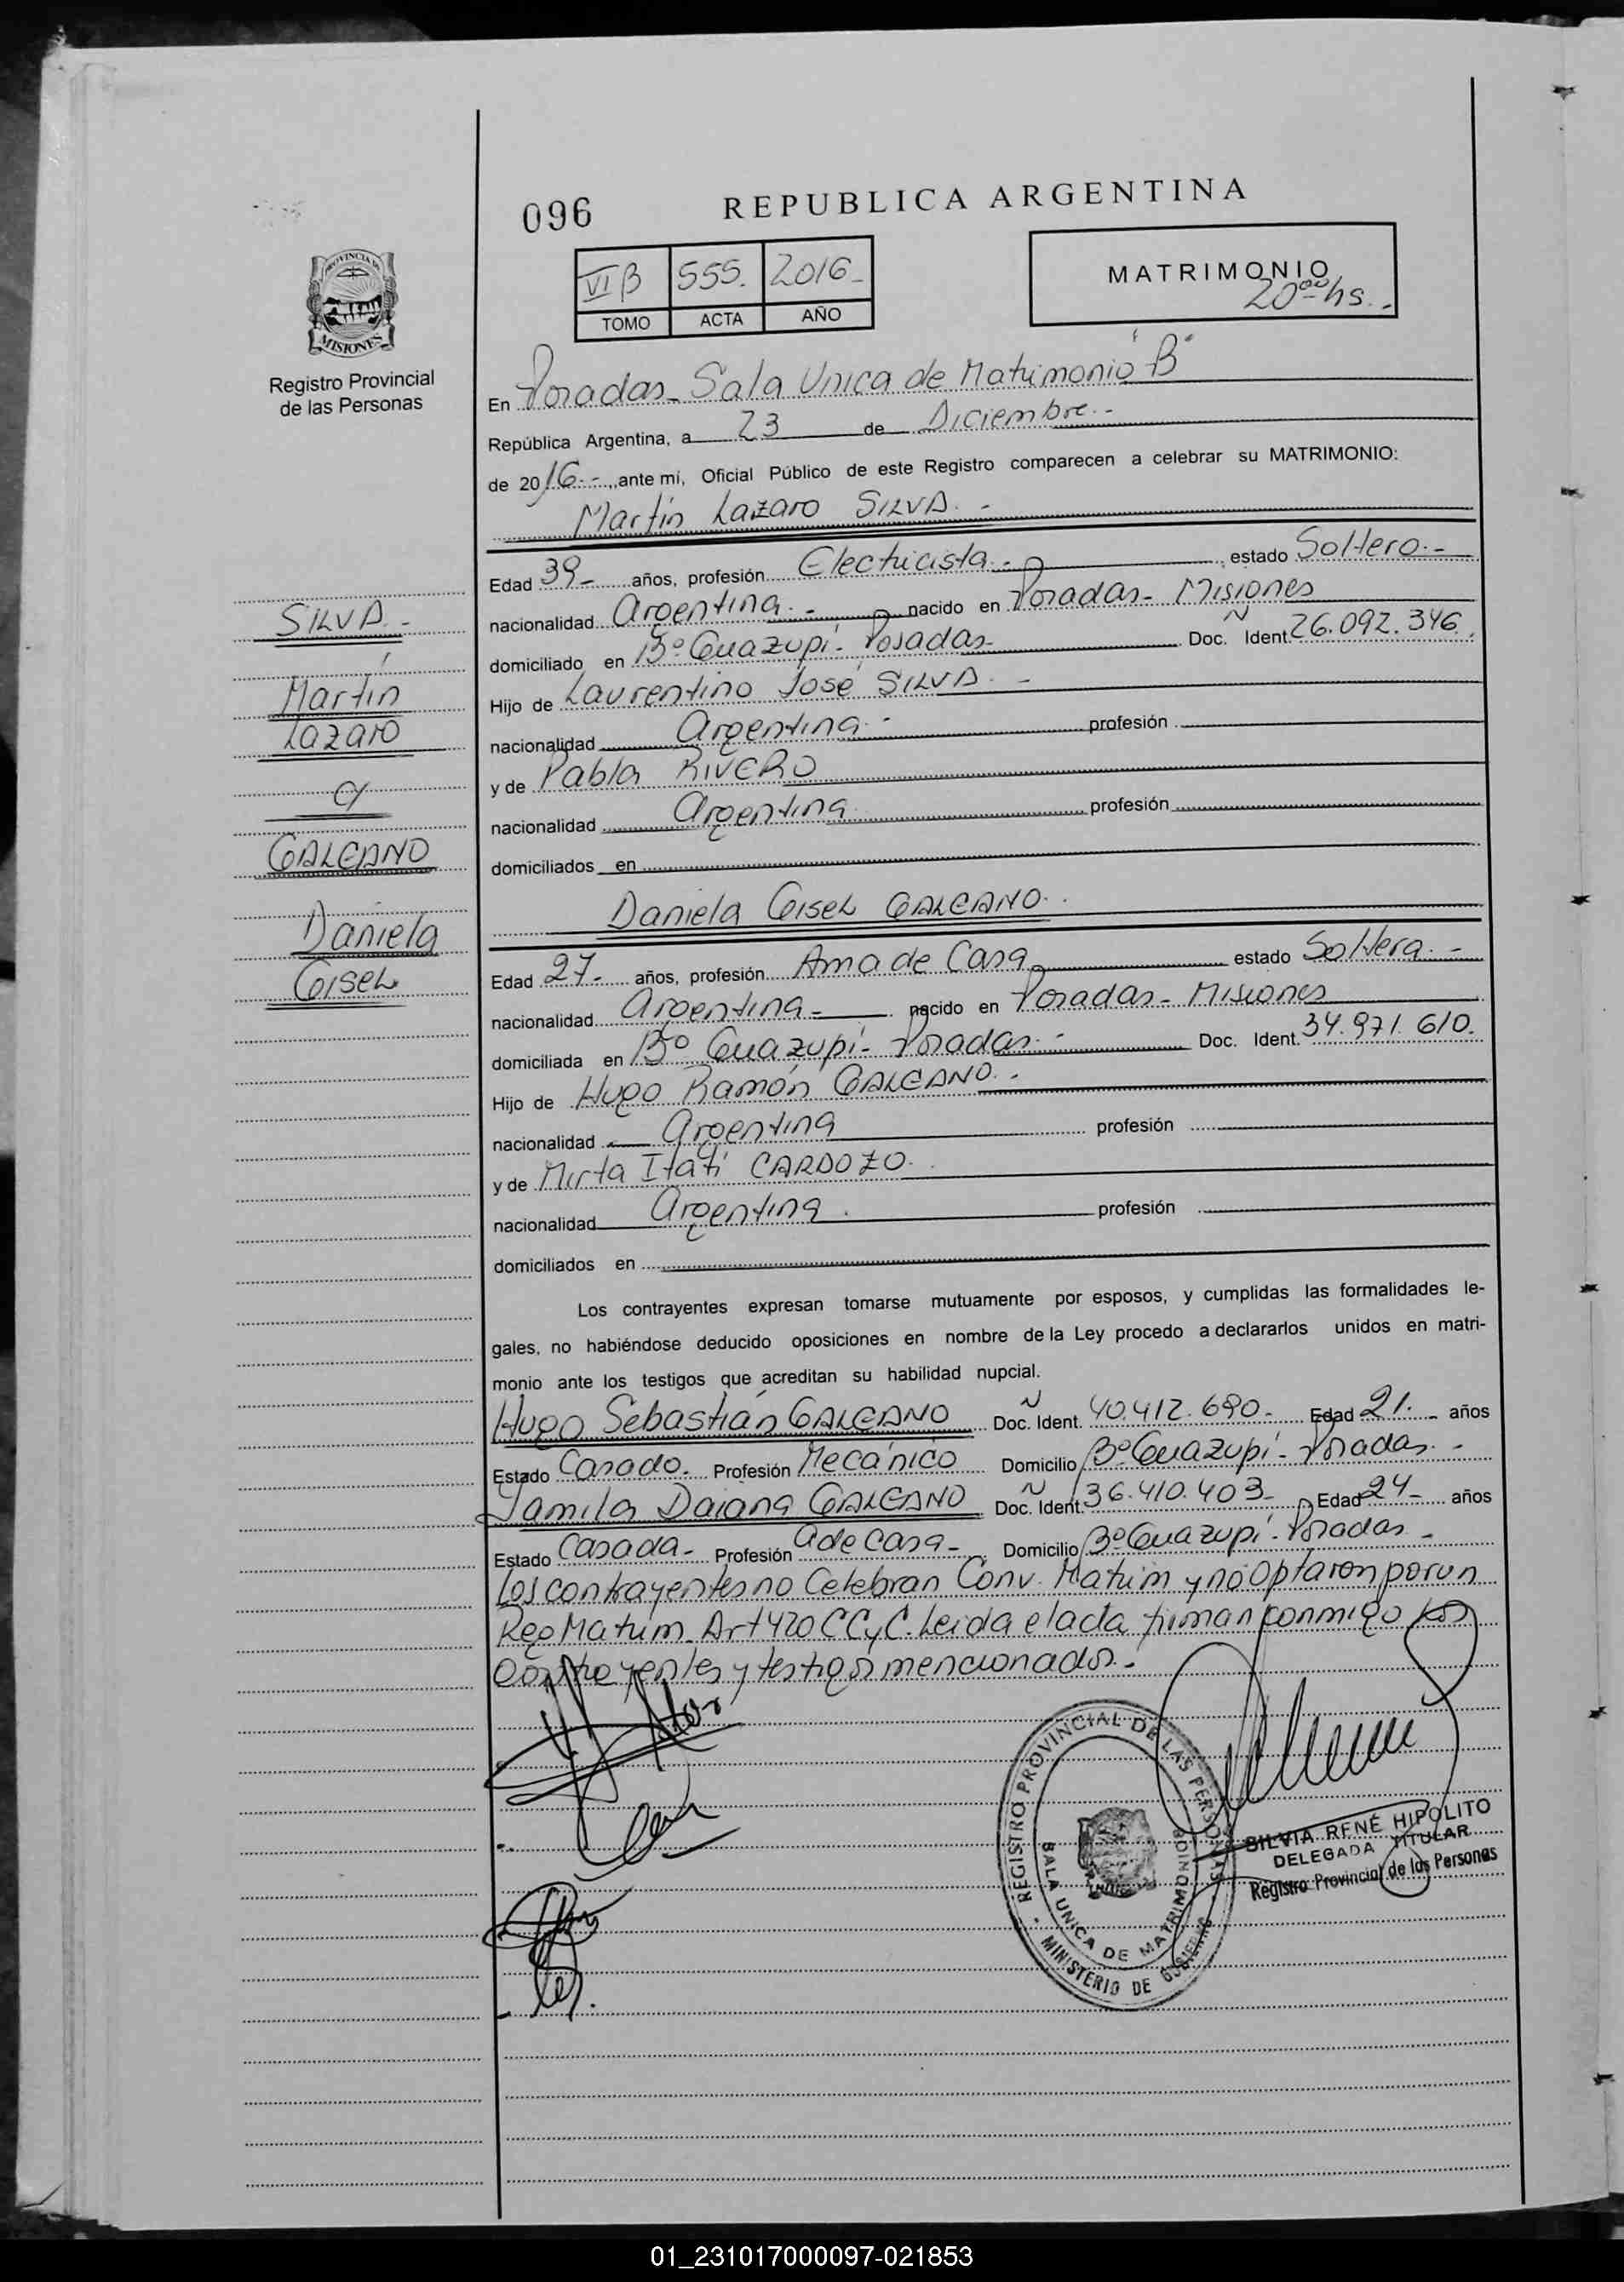 096
REPUBLICA ARGENTINA
VI B 555. 2016-
TOMO ACTA AÑO
MATRIMONIO
20⁰⁰ hs.-
PROVINCIA DE
MISIONES
Registro Provincial
de las Personas
En Posadas- Sala Unica de Matrimonio "B"
República Argentina, a 23 de Diciembre.-
de 2016.-, ante mí, Oficial Público de este Registro comparecen a celebrar su MATRIMONIO:
Martín Lazaro SILVA.-
Edad 39- años, profesión Electricista.- estado Soltero.-
nacionalidad Argentina.- nacido en Posadas- Misiones
domiciliado en Bº Guazupi- Posadas- Doc. Ident. N 26.092.346.
Hijo de Laurentino José SILVA.-
nacionalidad Argentina.- profesión
y de Pabla RIVERO
nacionalidad Argentina profesión
domiciliados en
Daniela Gisel GALEANO.
Edad 27- años, profesión Ama de Casa estado Soltera.-
nacionalidad Argentina- nacido en Posadas- Misiones
domiciliada en Bº Guazupi- Posadas.- Doc. Ident. 34.971.610.
Hijo de Hugo Ramón GALEANO.-
nacionalidad Argentina profesión
y de Mirta Itatí CARDOZO.
nacionalidad Argentina. profesión
domiciliados en
Los contrayentes expresan tomarse mutuamente por esposos, y cumplidas las formalidades le-
gales, no habiéndose deducido oposiciones en nombre de la Ley procedo a declararlos unidos en matri-
monio ante los testigos que acreditan su habilidad nupcial.
Hugo Sebastián GALEANO Doc. Ident. N 40.412.690- Edad 21.- años
Estado Casado. Profesión Mecánico Domicilio Bº Guazupi- Posadas.-
Yamila Daiana GALEANO Doc. Ident. N 36.410.403- Edad 24- años
Estado Casada- Profesión A de Casa- Domicilio Bº Guazupi- Posadas-
Los contrayentes no Celebran Conv. Matrim y no Optaron por un
Reg Matrim. Art 420 CCyC. Leida el acta firman conmigo los
contrayentes y testigos mencionados.-
SILVA.-
Martín
Lazaro
c/
GALEANO
Daniela
Gisel
REGISTRO PROVINCIAL DE LAS PERSONAS
SALA UNICA DE MATRIMONIOS
MINISTERIO DE GOBIERNO
SILVIA RENÉ HIPOLITO
DELEGADA TITULAR
Registro Provincial de las Personas
01_231017000097-021853